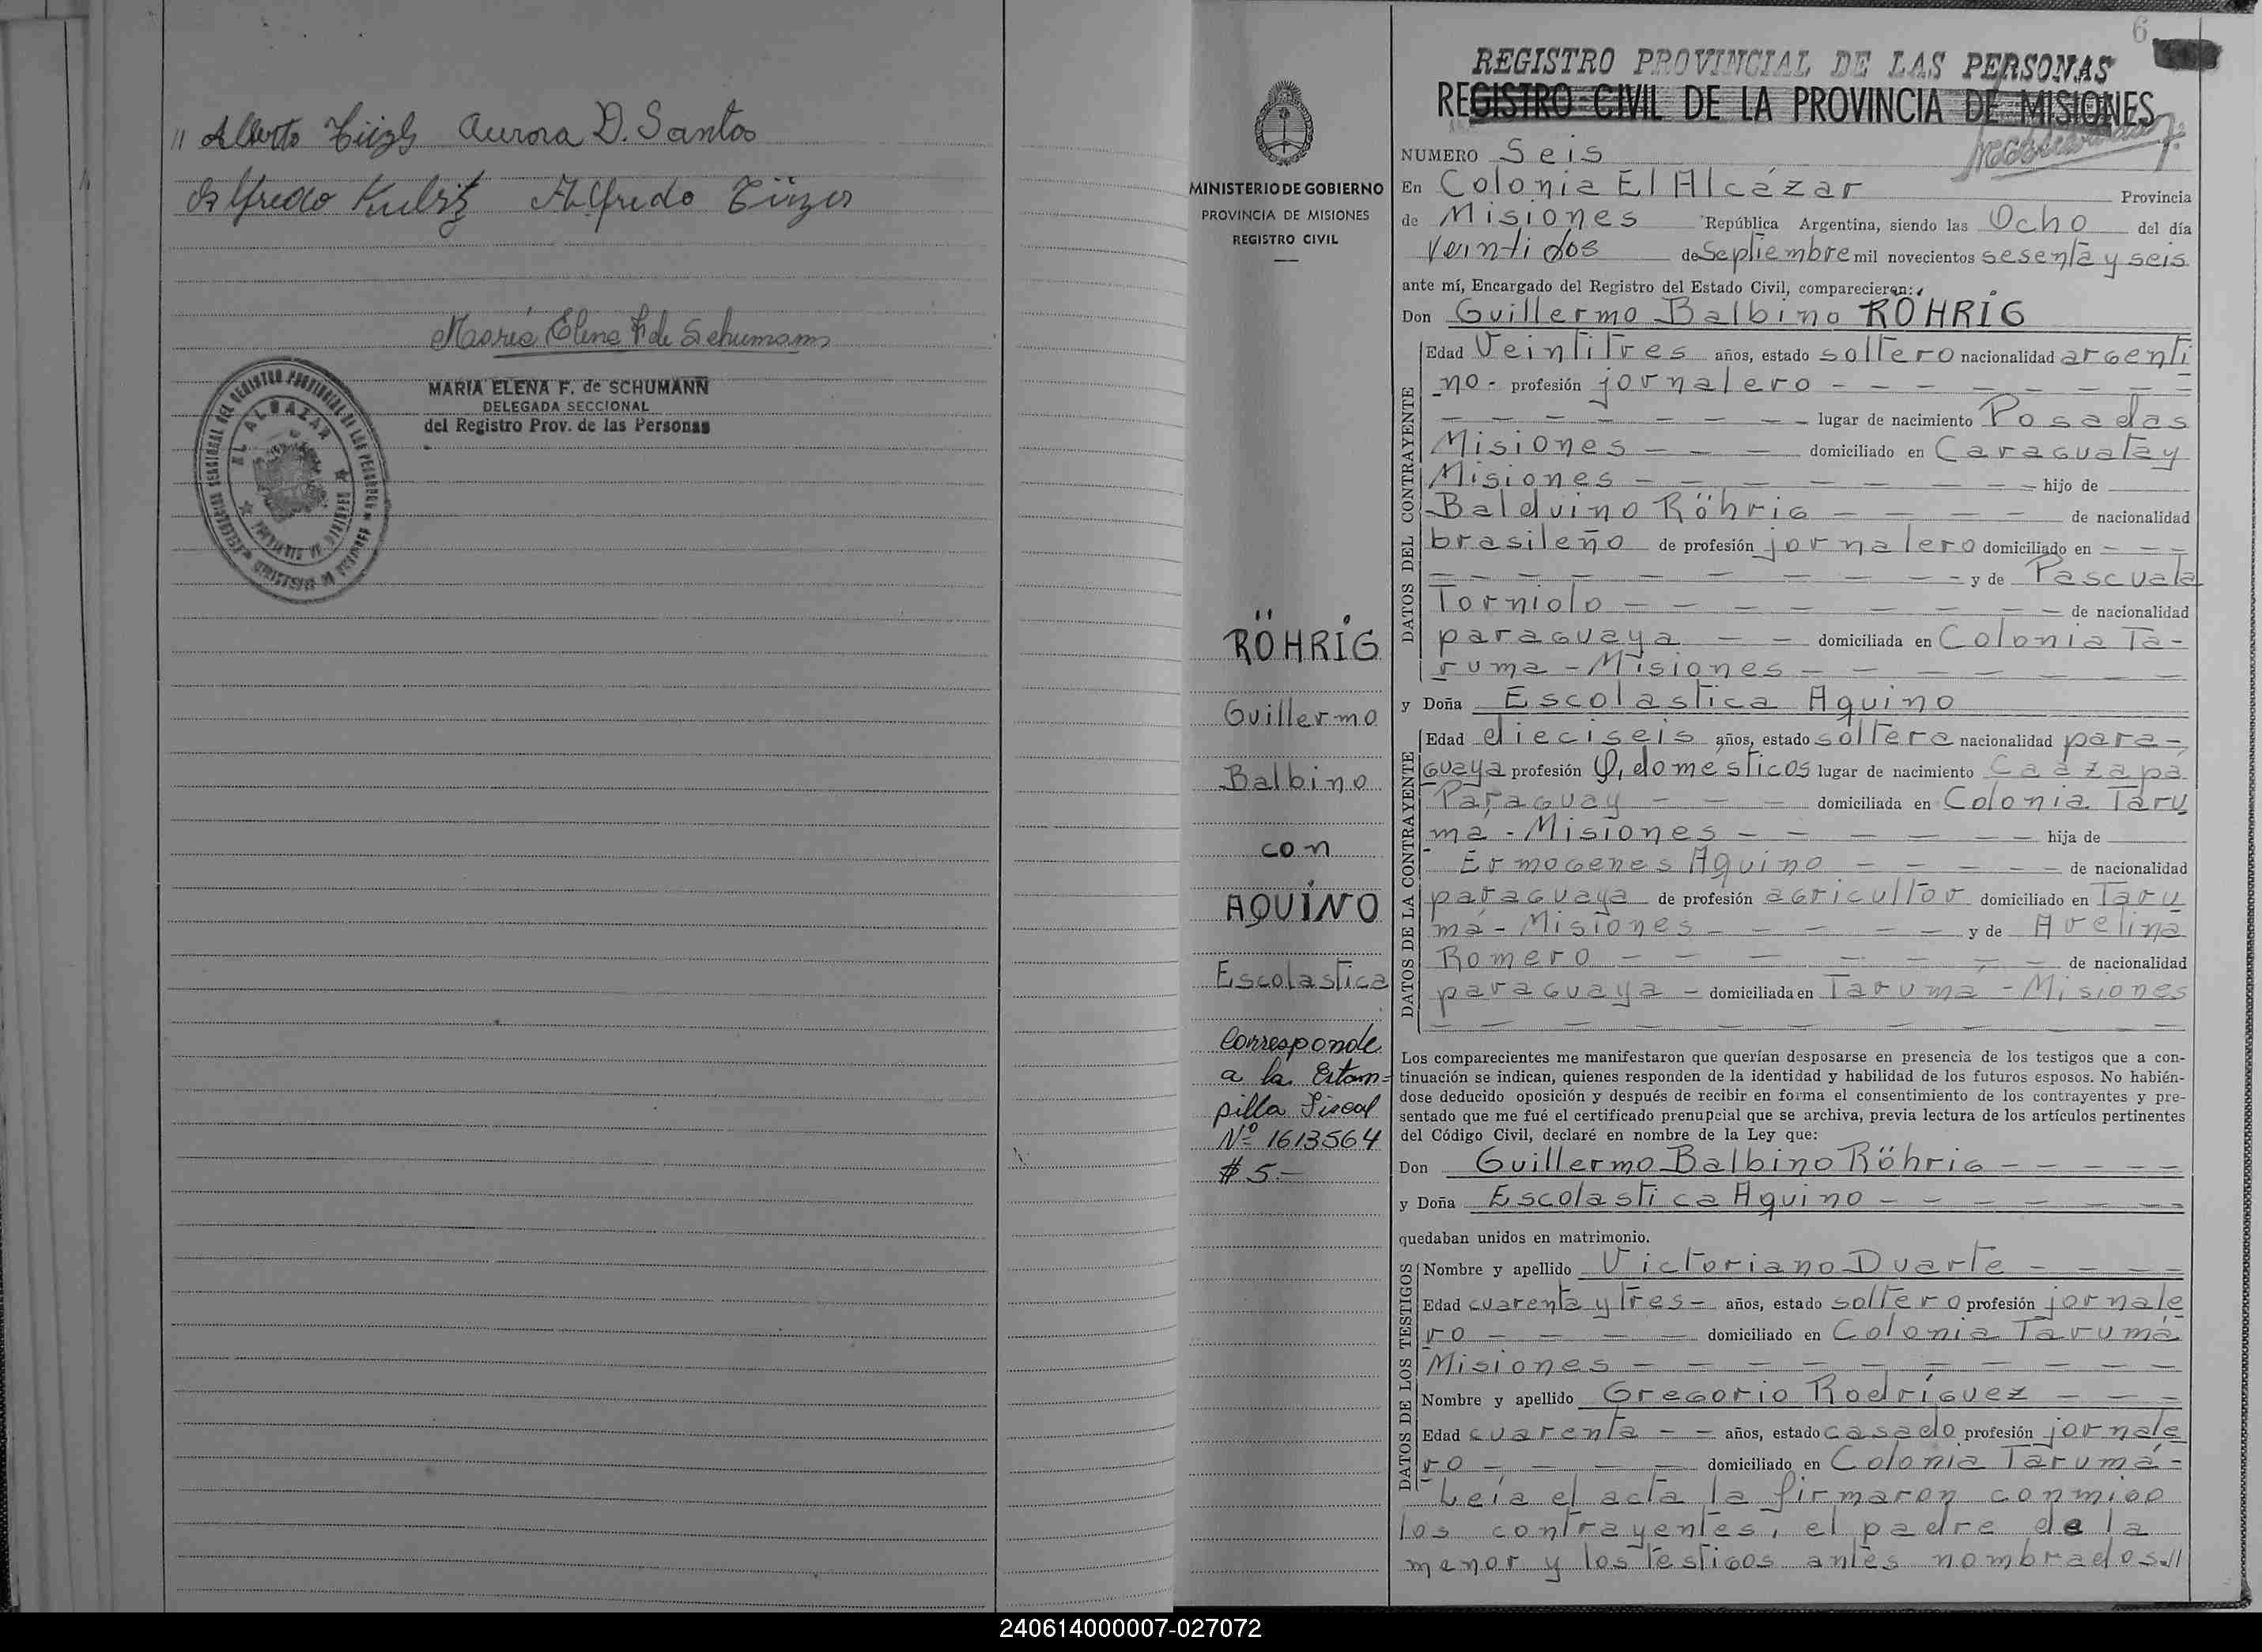 " Alberto Aurora D. Santos
Alfredo Kubitz Alfredo
Maria Elena F de Schumann
MARIA ELENA F. de SCHUMANN
DELEGADA SECCIONAL
del Registro Prov. de las Personas
EL ALCAZAR
6
REGISTRO PROVINCIAL DE LAS PERSONAS
REGISTRO CIVIL DE LA PROVINCIA DE MISIONES
MINISTERIO DE GOBIERNO
PROVINCIA DE MISIONES
REGISTRO CIVIL
RÖHRIG
Guillermo
Balbino
con
AQUINO
Escolastica
Corresponde
a la Estam=
pilla Fiscal
Nº 1613564
$ 5.-
NUMERO Seis
En Colonia El Alcázar Provincia
de Misiones República Argentina, siendo las Ocho del día
veinti dos de Septiembre mil novecientos sesenta y seis
ante mí, Encargado del Registro del Estado Civil, comparecieron:
Don Guillermo Balbino RÖHRIG
DATOS DEL CONTRAYENTE
Edad Veintitres años, estado soltero nacionalidad argenti
no - profesión jornalero - - - - - - -
- - - - - - - lugar de nacimiento Posadas
Misiones - - - domiciliado en Caraguatay
Misiones - - - - - - - hijo de
Balduino Röhrig - - - - de nacionalidad
brasileño de profesión jornalero domiciliado en - - -
- - - - - - - - - y de Pascuala
Torniolo - - - - - - - de nacionalidad
paraguaya - - domiciliada en Colonia Ta-
ruma - Misiones - - - - - - -
y Doña Escolastica Aquino
DATOS DE LA CONTRAYENTE
Edad dieciseis años, estado soltera nacionalidad para-
guaya profesión Q. domesticos lugar de nacimiento Caazapa
Paraguay - - - domiciliada en Colonia Taru
ma - Misiones - - - - - - hija de
Ermogenes Aquino - - - - de nacionalidad
paraguaya de profesión agricultor domiciliado en Taru
má - Misiones - - - - - y de Avelina
Romero - - - - - - - de nacionalidad
paraguaya - domiciliada en Taruma - Misiones
- - - - - - - - - -
Los comparecientes me manifestaron que querían desposarse en presencia de los testigos que a con-
tinuación se indican, quienes responden de la identidad y habilidad de los futuros esposos. No habién-
dose deducido oposición y después de recibir en forma el consentimiento de los contrayentes y pre-
sentado que me fué el certificado prenupcial que se archiva, previa lectura de los artículos pertinentes
del Código Civil, declaré en nombre de la Ley que:
Don Guillermo Balbino Röhrig - - - - -
y Doña Escolastica Aquino - - - - - -
quedaban unidos en matrimonio.
DATOS DE LOS TESTIGOS
Nombre y apellido Victoriano Duarte - - - -
Edad cuarenta y tres - años, estado soltero profesión jornale
ro - - - - domiciliado en Colonia Tarumá
Misiones - - - - - - - - - -
Nombre y apellido Gregorio Rodríguez - - -
Edad cuarenta - - años, estado casado profesión jornale
ro - - - - domiciliado en Colonia Tarumá -
Leía el acta la firmaron conmigo
los contrayentes, el padre de la
menor y los testigos antes nombrados.//
240614000007-027072